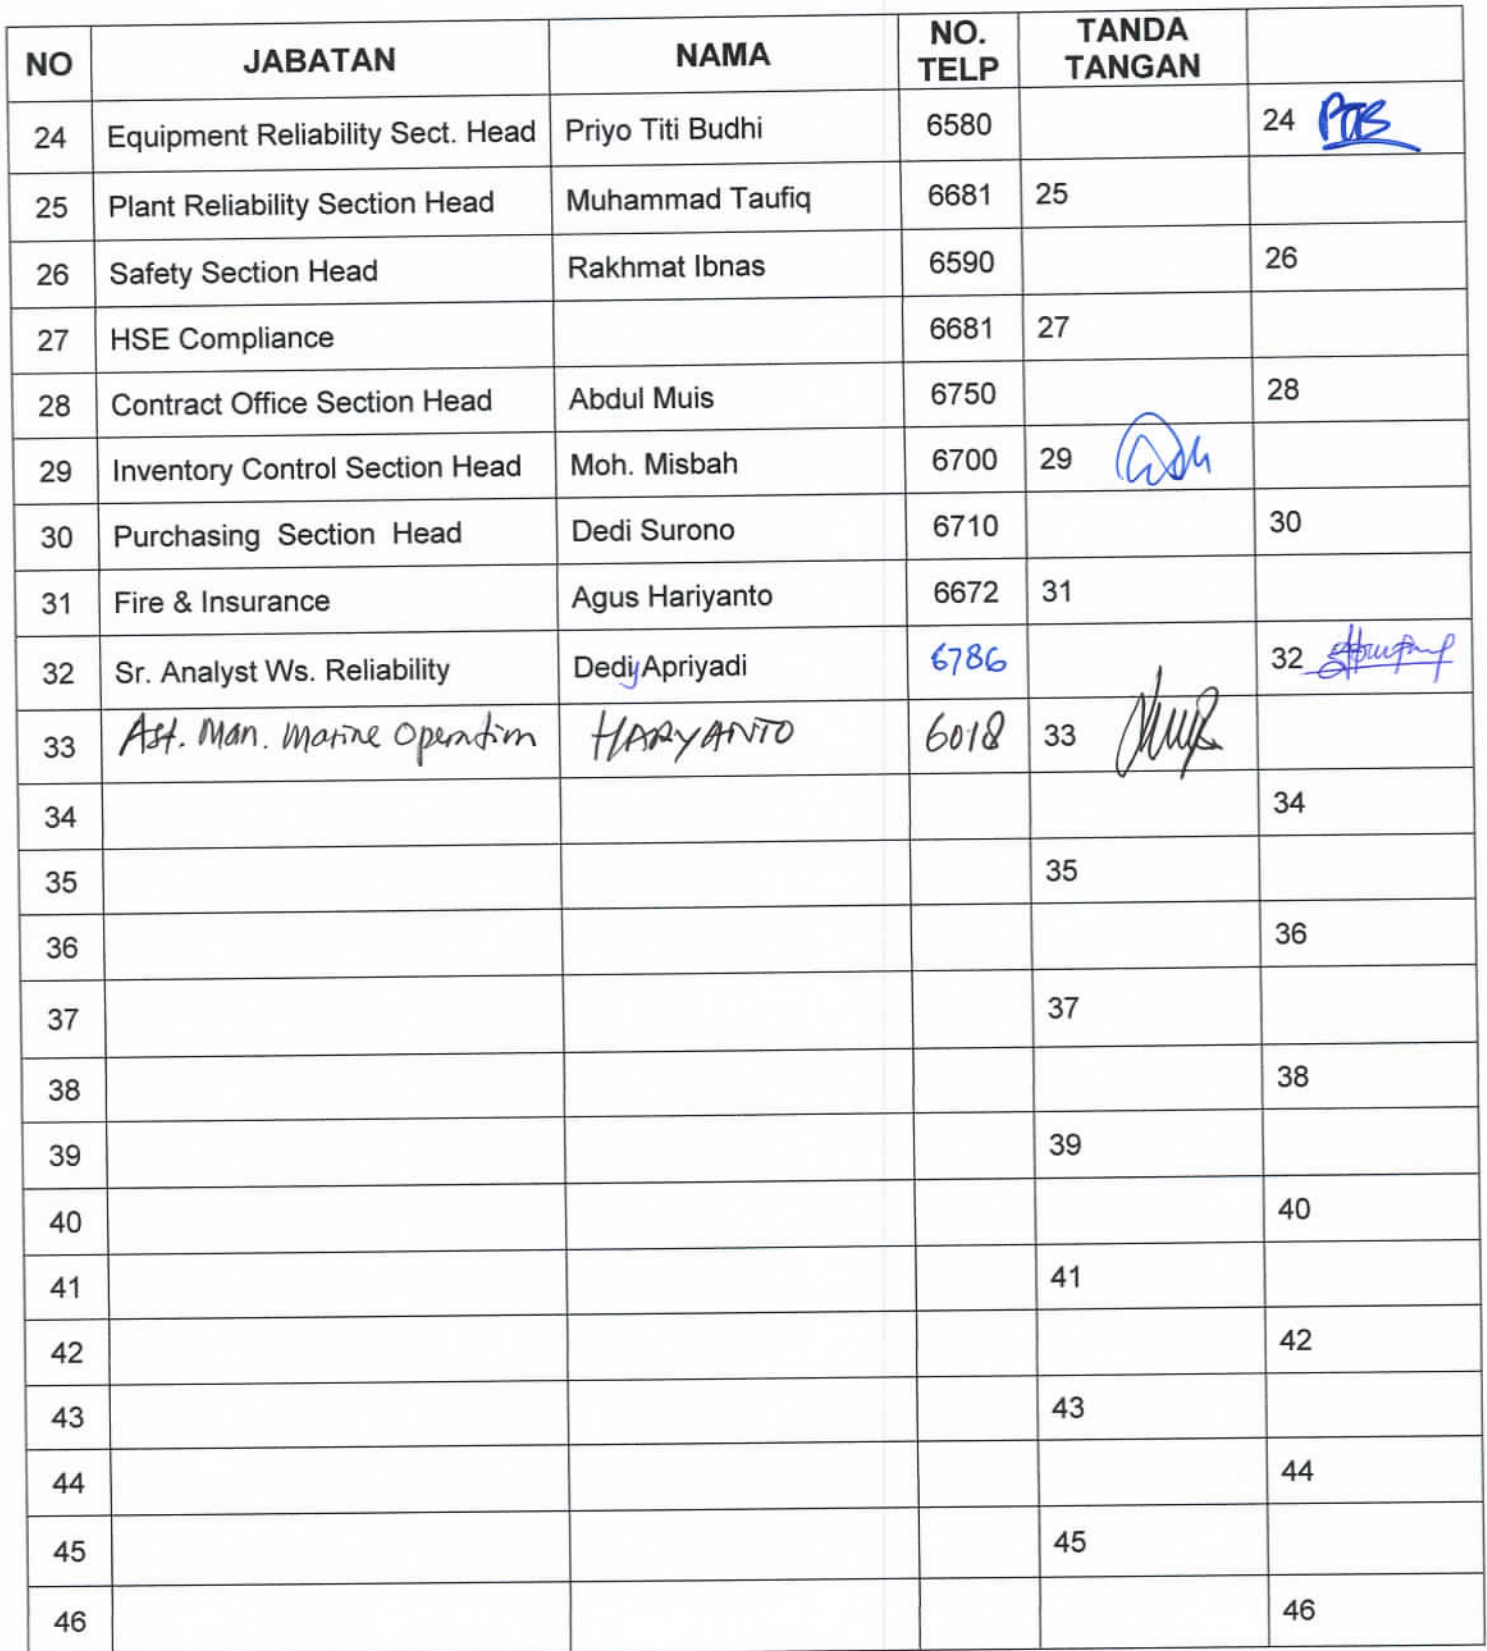 NO JABATAN NAMA NO. TELP TANDA TANGAN
24 Equipment Reliability Sect. Head Priyo Titi Budhi 6580 24 PTB
25 Plant Reliability Section Head Muhammad Taufiq 6681 25
26 Safety Section Head Rakhmat Ibnas 6590 26
27 HSE Compliance 6681 27
28 Contract Office Section Head Abdul Muis 6750 28
29 Inventory Control Section Head Moh. Misbah 6700 29
30 Purchasing Section Head Dedi Surono 6710 30
31 Fire & Insurance Agus Hariyanto 6672 31
32 Sr. Analyst Ws. Reliability Dedy Apriyadi 6786 32
33 Ast. Man. Marine Operation HARYANTO 6018 33
34 34
35 35
36 36
37 37
38 38
39 39
40 40
41 41
42 42
43 43
44 44
45 45
46 46